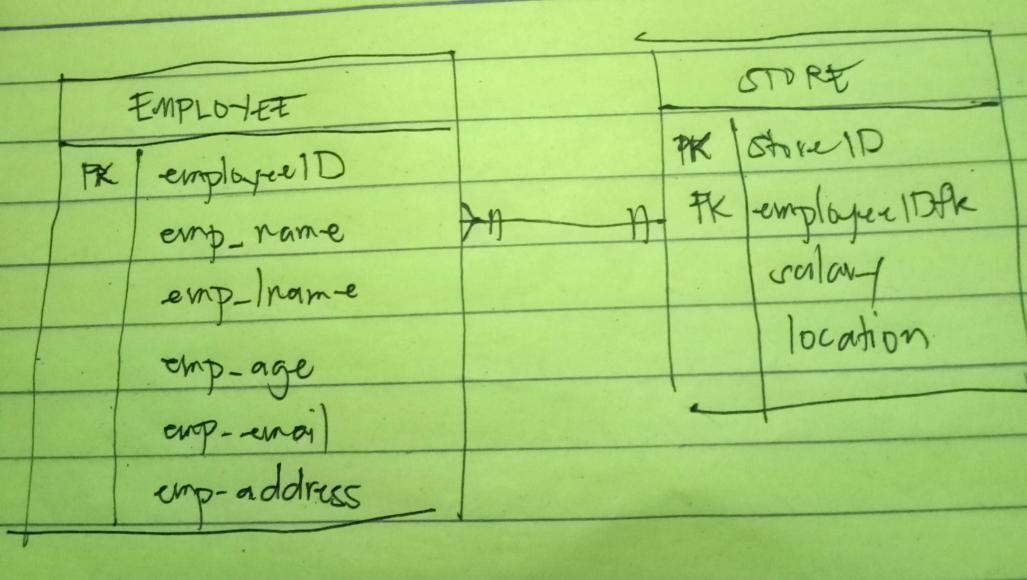 EMPLOYEE
PK employeeID
emp_name
emp_lname
emp_age
emp_email
emp-address
STORE
PK storeID
FK employeeIDfk
salary
location